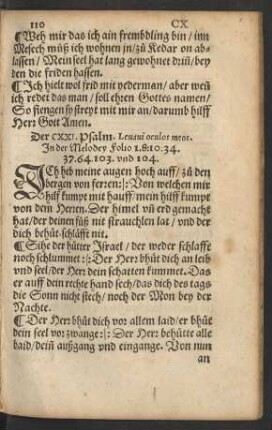 110 CX
¶Weh mir das ich ain frembdling bin / im̄
Mesech müß ich wohnen jn / zů Kedar on ab-
lassen / Mein seel hat lang gewohnet drin̄ / bey
den die friden hassen.
¶Ich hielt wol frid mit yederman / aber weñ
ich redet das man / soll ehren Gottes namen /
So fiengen sy streyt mit mir an / darumb hilff
Herꝛ Gott Amen.
Der CXXI. Psalm. Leuaui oculos meos.
In der Melodey folio 1.8.10.34.
37.64.103. vnd 104.
ICh heb meine augen hoch auff / zů den
bergen von ferren :|: Von welchen mir
hilf kumpt mit hauff / mein hilff kumpt
von dem Herren. Der himel vñ erd gemacht
hat / der deinen fůß nit strauchlen lat / vnd der
dich behüt schläfft nit.
¶Sihe der hütter Jsrael / der weder schlaffe
noch schlummet :|: Der Herꝛ bhüt dich an leib
vnd seel / der Herꝛ dein schatten kummet. Das
er auff dein rechte hand sech / das dich des tags
die Sonn nicht stech / noch der Mon bey der
Nachte.
¶Der Herꝛ bhüt dich vor allem laid / er bhüt
dein seel vor zwange :|: Der Herꝛ behütte alle
baid / dein̄ außgang vnd eingange. Von nun
an